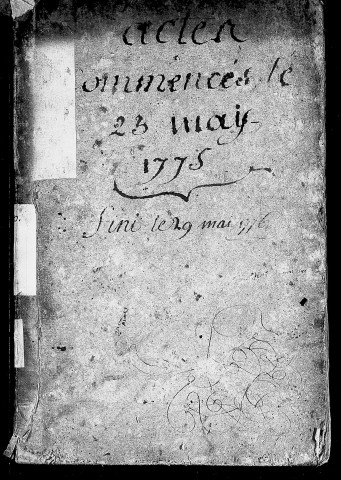 actes
commencés le
23 may
1775
fini le 29 mai 1776